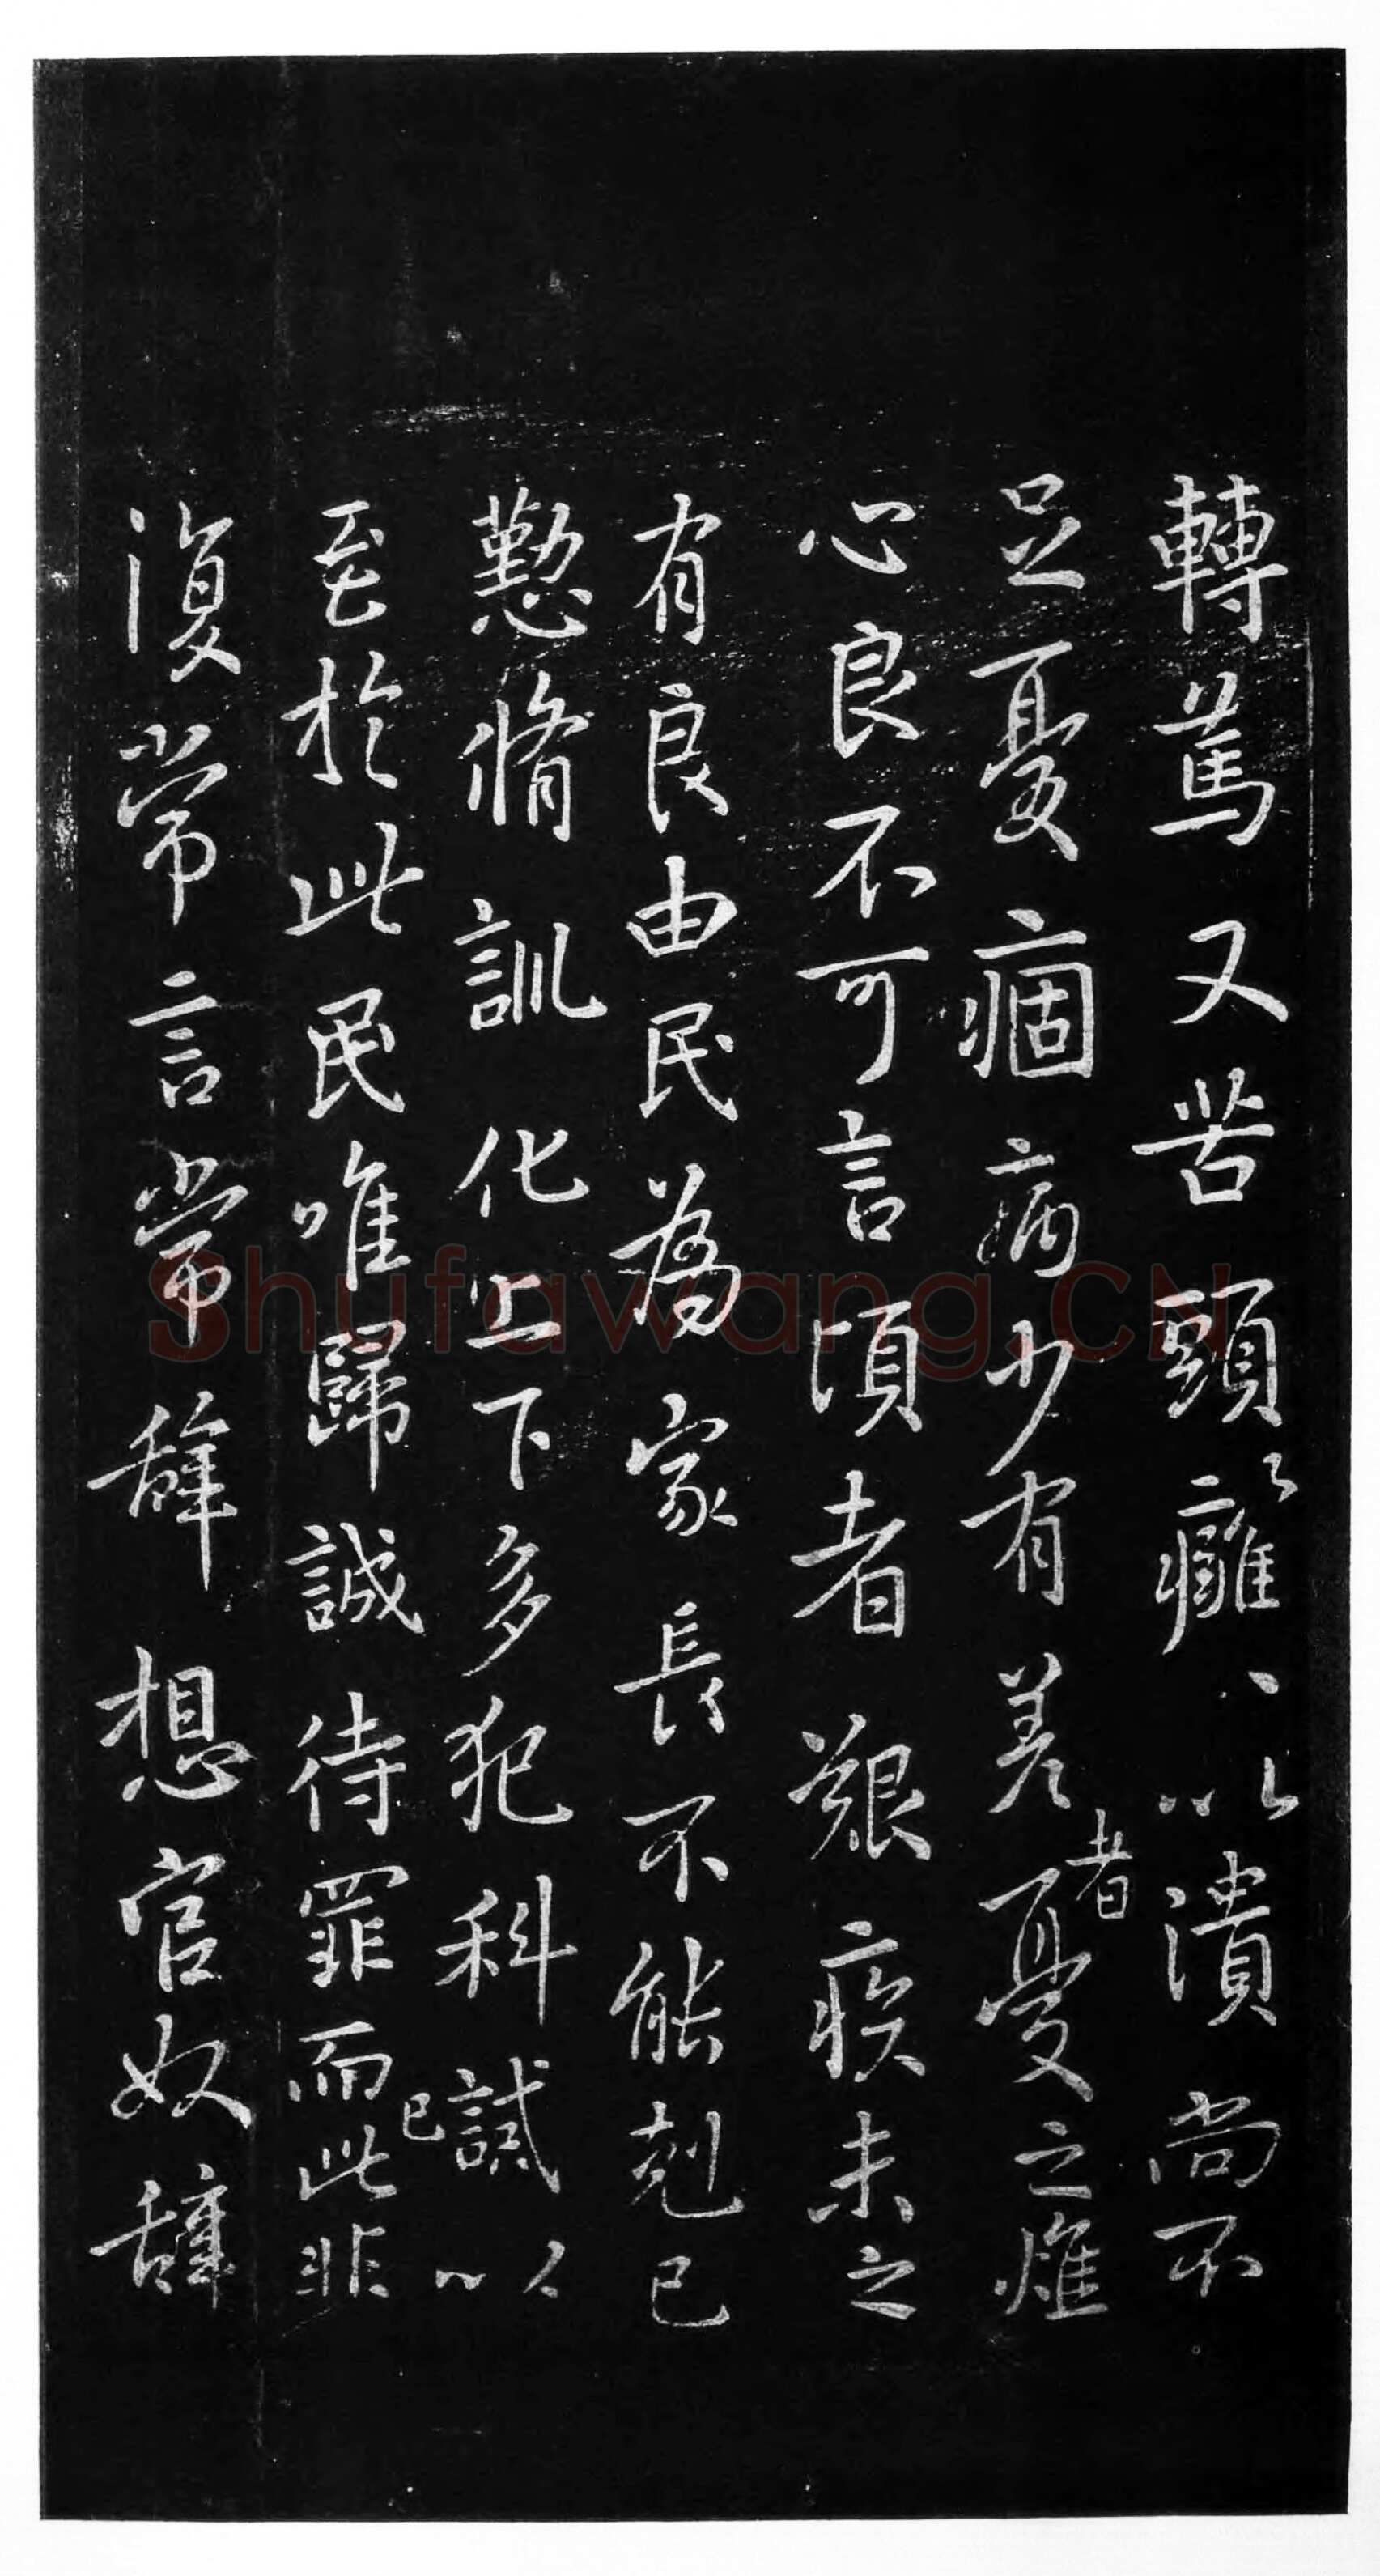 轉篤又苦頭癰以潰尚不
足憂痼病少有差者憂之燋
心良不可言頃者艱疾未之
有良由民為家長不能剋己
懃脩訓化上下多犯科誡以
至於此民唯歸誠待罪而此非
復常言常辭想官奴辭
已
shufawang.CN